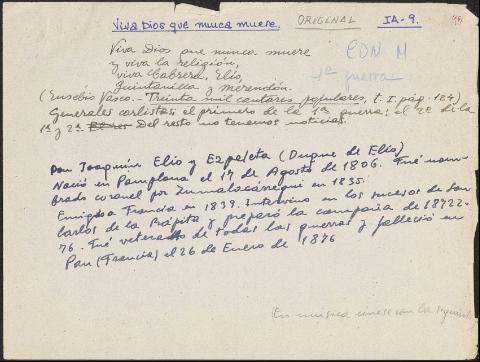 Viva Dios que nunca muere. ORIGINAL IA-9.
Viva Dios que nunca muere
y viva la religión,
viva Cabrera, Elío,
Quintanilla y Merendón.
CON M
1ª guerra
(Eusebio Vasco.- Treinta mil cantares populares, t. I. pág.-124)
Generales carlistas, el primero de la 1ª guerra; el 2º de la
1ª y 2ª. Del resto no tenemos noticias.
Don Joaquín Elio y Ezpeleta (Duque de Elío)
Nació en Pamplona el 17 de Agosto de 1806. Fué nom-
brado coronel por Zumalacárregui en 1835.
Emigró a Francia en 1839. Intervino en los sucesos de San
Carlos de la Rápita y preparó la campaña de 1872-
76. Fué veterano de todas las guerras y falleció en
Pau (Francia) el 26 de Enero de 1876
En música únese con la siguiente